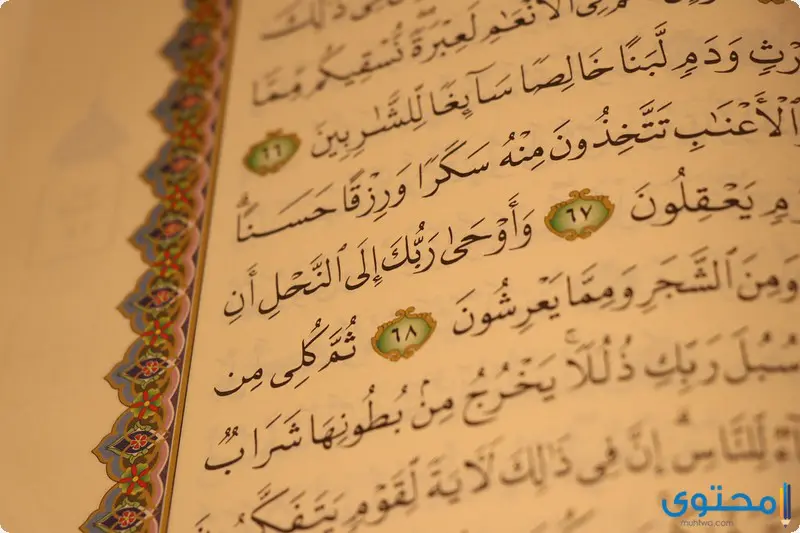 ذَٰلِكَ
ٱلْأَنْعَٰمِ لَعِبْرَةً نُّسْقِيكُم مِّمَّا
وَدَمٍ لَّبَنًا خَالِصًا سَآئِغًا لِّلشَّٰرِبِينَ ٦٦
ٱلْأَعْنَٰبِ تَتَّخِذُونَ مِنْهُ سَكَرًا وَرِزْقًا حَسَنًا ۗ
يَعْقِلُونَ ٦٧ وَأَوْحَىٰ رَبُّكَ إِلَى ٱلنَّحْلِ أَنِ
وَمِنَ ٱلشَّجَرِ وَمِمَّا يَعْرِشُونَ ٦٨ ثُمَّ كُلِى مِن
سُبُلَ رَبِّكِ ذُلُلًا ۚ يَخْرُجُ مِنۢ بُطُونِهَا شَرَابٌ
لِّلنَّاسِ ۗ إِنَّ فِى ذَٰلِكَ لَءَايَةً لِّقَوْمٍ يَتَفَكَّرُونَ
محتوى
muhtwa.com